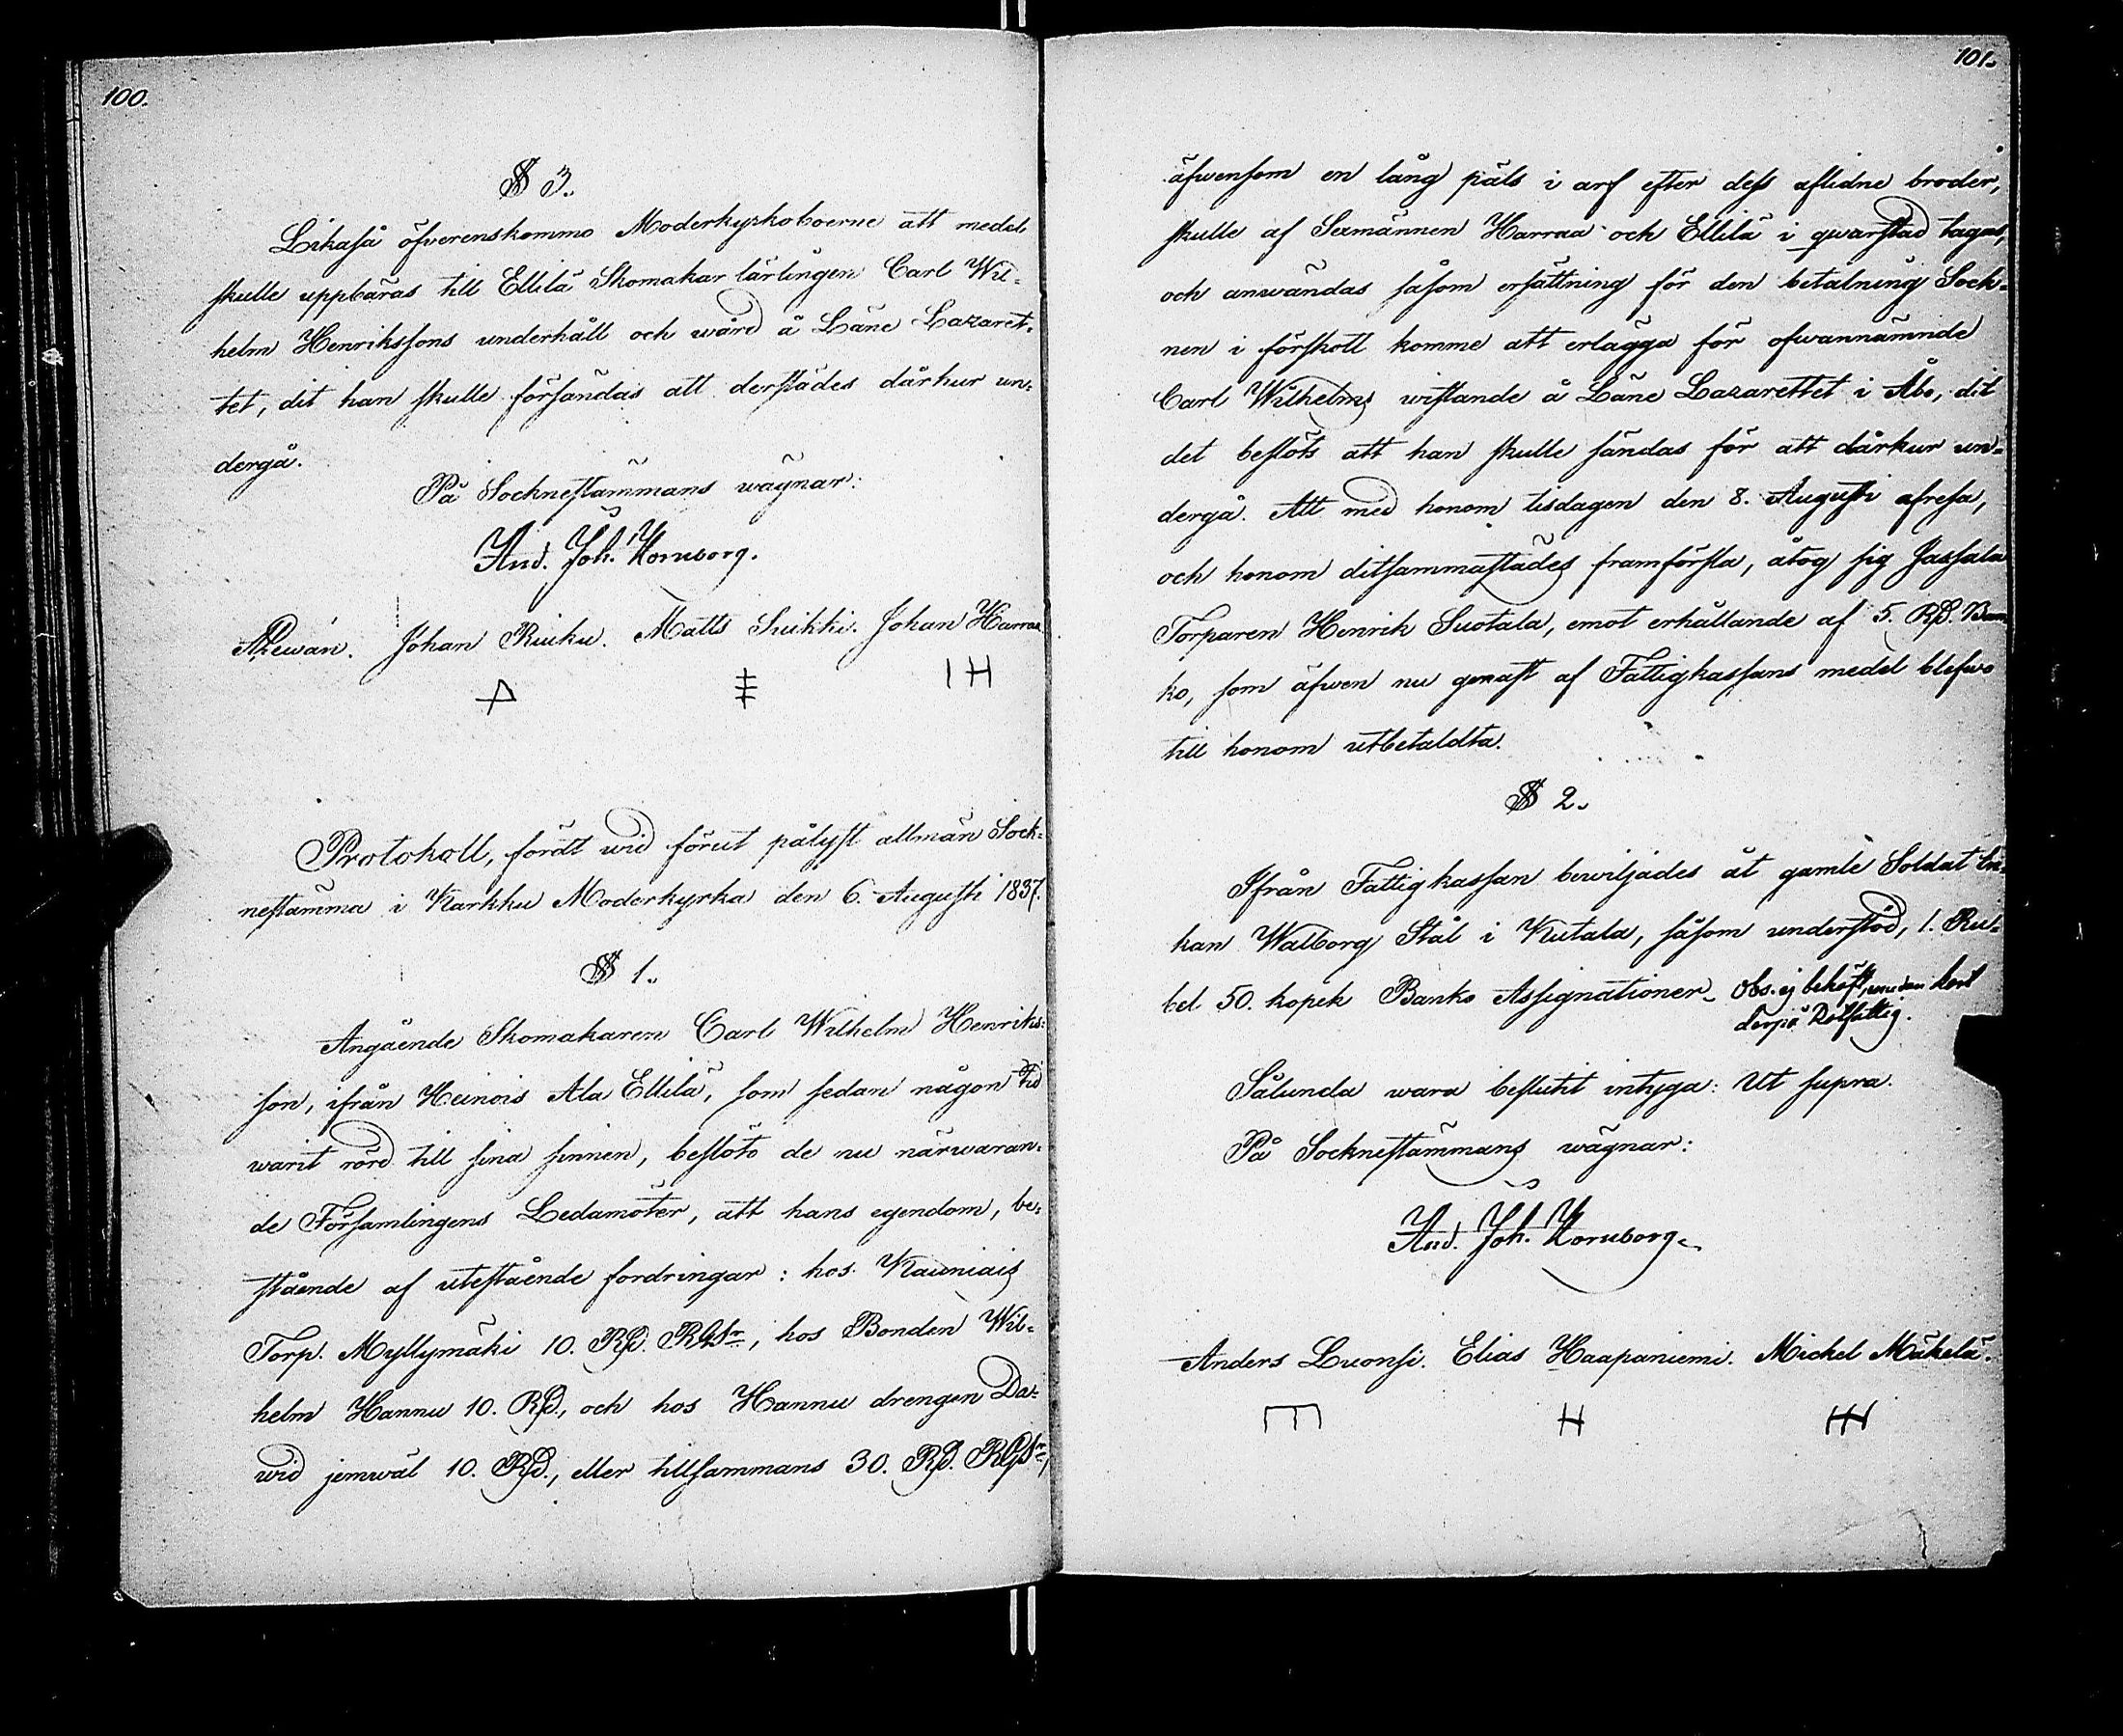 100.
§ 3.
Likaså öfverenskommo Moderkyrkoboerne att medel
skulle uppbäras till Ellilä Skomakar lärlingen Carl Wil-
helm Henrikssons underhåll och wård å Läne Lazaret-
tet, dit han skulle försändas att derstädes dårkur un-
dergå.
På Socknestämmans wägnar:
And. Joh. Kornborg.
Johan Riuku. Matts Suikki. Johan Harraa
IH
Protokoll, fördt wid förut pålyst allmän Sock-
nestämma i Karkku Moderkyrka den 6. Augusti 1837.
§ 1.
Angående Skomakaren Carl Wilhelm Henriks-
son, ifrån Heinois Ala Ellilä, som sedan någon tid
warit rörd till sina sinnen, beslöto de nu närwaran-
de Församlingens Ledamöter, att hans egendom, be-
stående af utestående fordringar: hos Kauniais
Torp. Myllymäki 10. Rd. RGSr, hos Bonden Wil-
helm Hannu 10. Rd., och hos Hannu drengen Da-
wid jemwäl 10. Rd., eller tillsammans 30. Rd. RGSr,
101.
äfwensom en lång päls i arf efter dess aflidne broder,
skulle af Sexmännen Harraa och Ellilä i qwarstad tagas,
och anwändas såsom ersättning för den betalning Sock-
nen i förskott komme att erlägga för ofwannämnde
Carl Wilhelms wistande å Läne Lazarettet i Åbo, dit
det beslöts att han skulle sändas för att dårkur un-
dergå. Att med honom tisdagen den 8. Augusti afresa,
och honom ditsammastädes framförsla, åtog sig Jassala
Torparen Henrik Suotala, emot erhållande af 5. Rd. Ban-
ko, som äfwen nu genast af Fattigkassans medel blefwo
till honom utbetaldta.
§ 2.
Ifrån Fattigkassan bewiljades åt gamle Soldat En-
kan Walborg Stål i Kutala, såsom understöd, 1. Ru-
bel 50. kopek Banko Assignationer. Obs. ej behöft, undan kort
derpå Rotfattig.
Sålunda wara beslutit intyga: Ut supra.
På Socknestämmans wägnar:
And. Joh. Kornborg.
Anders Luonsi. Elias Haapaniemi. Michel Mäkelä.